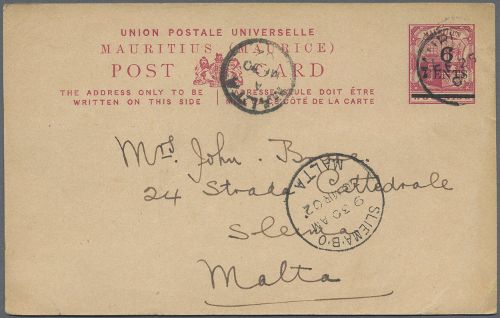 UNION POSTALE UNIVERSELLE
MAURITIUS (MAURICE)
POST CARD
THE ADDRESS ONLY TO BE
WRITTEN ON THIS SIDE
DOIT ÊTRE
CÔTÉ DE LA CARTE
MAURITIUS
6
CENTS
MALTA
Mrs John
24 Strada Cattedrale
Sliema
Malta
SLIEMA·B·O
MALTA
9 30 AM
MR 02